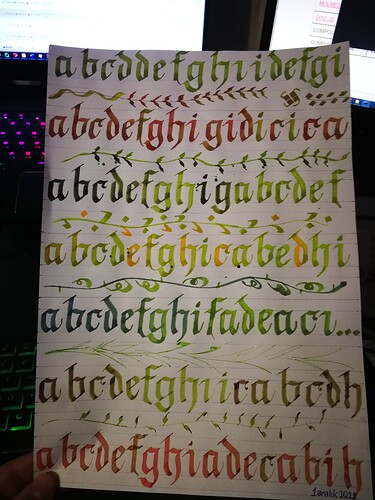 COMPOL
abcddefghiidefgi
abcdefghigidicica
abcdefghigabcdef
abcdefghicabedhi
abcdefghifadeaci...
abcdefghiicabcdh
abcdefghiadecabih